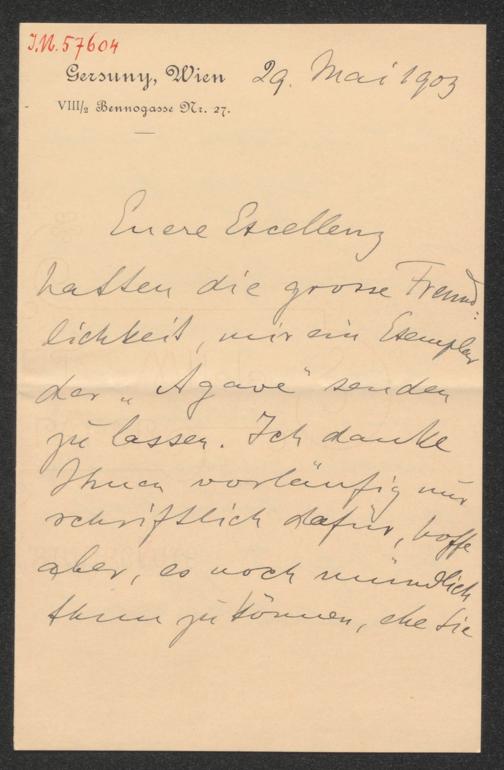 I.N. 57604
Gersuny, Wien 29. Mai 1903
VIII/2 Bennogasse Nr. 27.
Euere Excellenz
hatten die grosse Freund-
lichkeit, mir ein Exemplar
der „Agave" senden
zu lassen. Ich danke
Ihnen vorläufig nur
schriftlich dafür, hoffe
aber, es noch mündlich
thun zu können, ehe Sie